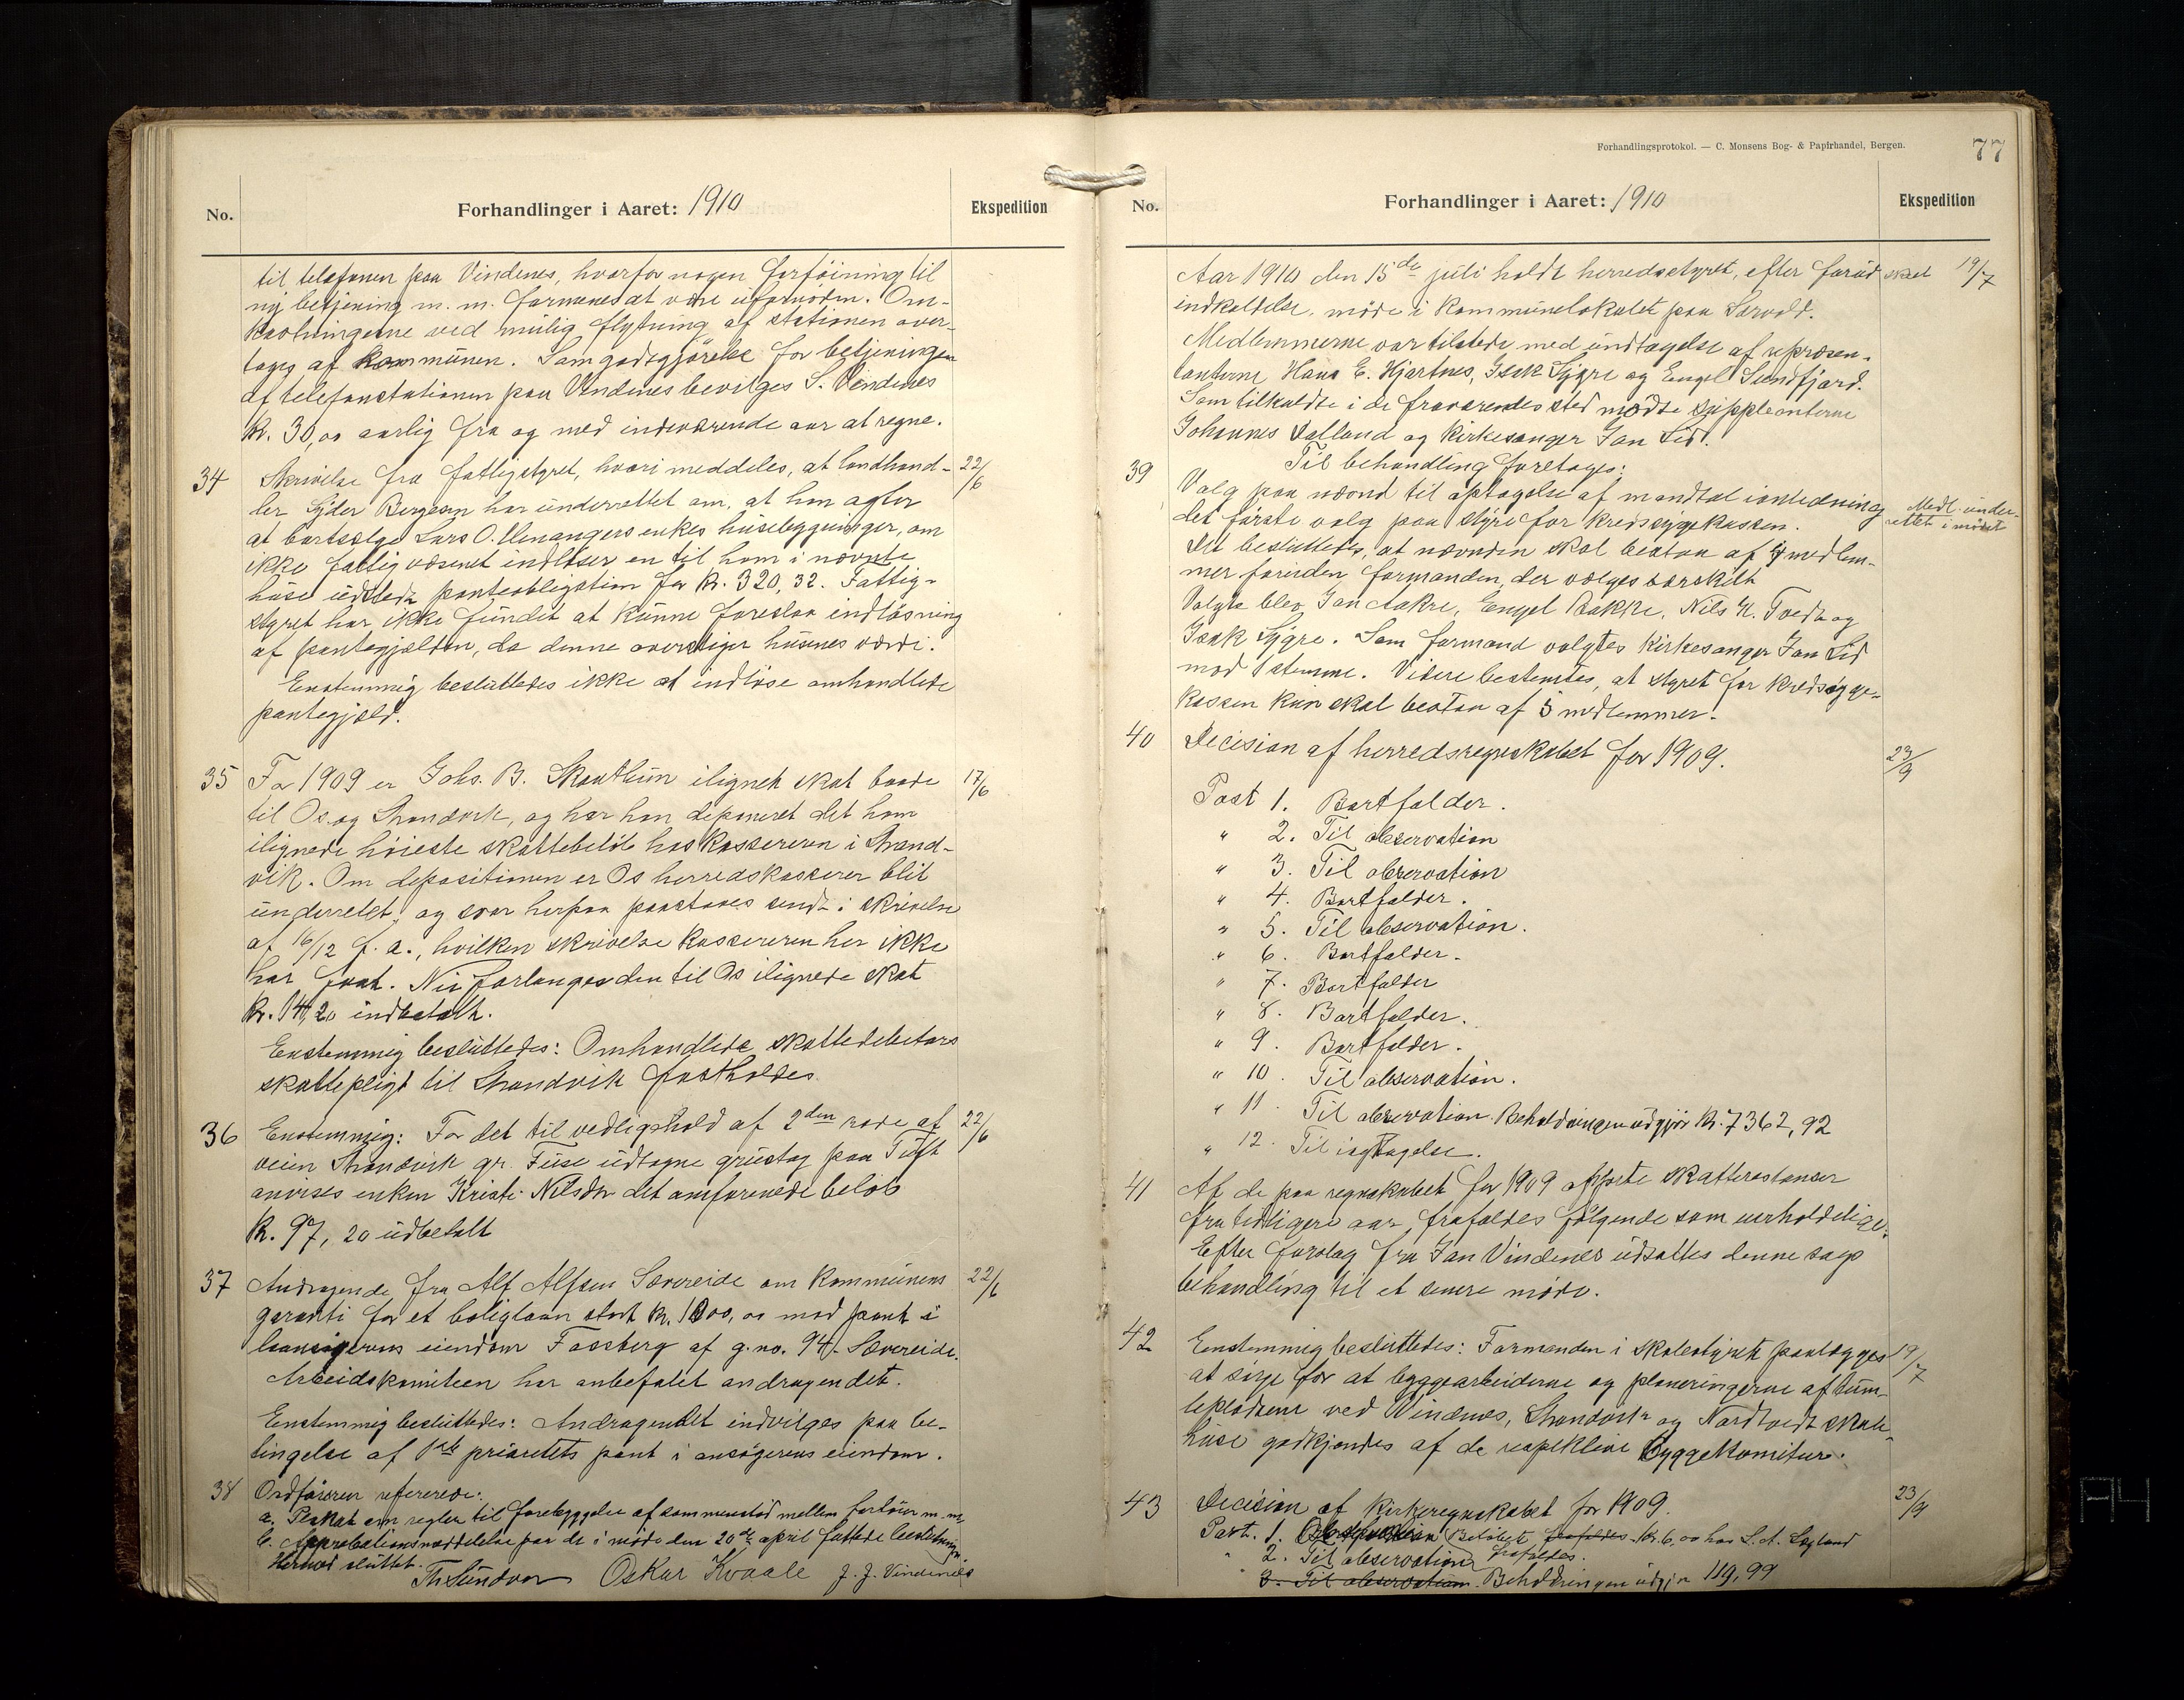 Forhandlinger i Aaret: 1910
No.
Ekspedition
til telefonen paa Vindenes, hvorfor nogen forföining til
ny betjening m. m. formenes at være ufornöden. Om-
kostningerne ved mulig flytning af stationen over-
tages af kommunen. Som godtgjörelse for betjeningen
af telefonstationen paa Vindenes bevilges S. Vindenes
kr. 30,00 aarlig fra og med indeværende aar at regne.
34 Skrivelse fra fattigstyret, hvori meddeles, at landhand- 22/6
ler Sjder Bergesen har underrettet om, at han agter
at bortsælge Lars O. Henangers enkes husebygninger, om
ikke fattigvæsenet indlöser en til ham i nævnte
huse udstedt panteobligation for kr. 320,32. Fattig-
styret har ikke fundet at kunne foreslaa indlösning
af pantegjælden, da denne overstiger husenes værdi.
Enstemmig besluttedes ikke at indlöse omhandlede
pantegjæld.
35 For 1909 er Johs. B. Skaathun ilignet skat baade 17/6
til Os og Strandvik, og har han deponeret det ham
ilignede höieste skattebelöb hos kassereren i Strand-
vik. Om depositionen er Os herredskasserer blit
underrettet, og svar herpaa paastaaes sendt i skrivelse
af 16/12 f. a., hvilken skrivelse kassereren her ikke
har faat. Nu forlanges den til Os ilignede skat
kr. 14,20 indbetalt.
Enstemmig besluttedes: Omhandlede skattedebitors
skattepligt til Strandvik fastholdes.
36 Enstemmig: For det til vedligehold af 2den rode af 22/6
veien Strandvik gr. Fuse udtagne grustag paa Tuft
anvises enken Kristi Nilsdtr det omforenede belöb
kr. 97,20 udbetalt
37 Andragende fra Alf Alfsen Sævereide om kommunens 22/6
garanti for et boliglaan stort kr. 1000,00 mod pant i
laansögerens eiendom Fossberg af g. no. 94 Sævereide.
Arbeidskomiteen har anbefalet andragendet.
Enstemmig besluttedes: Andragendet indvilges paa be-
tingelse af 1ste prioritets pant i ansögerens eiendom.
38 Ordföreren refererede:
a. Plakat om regler til forebyggelse af sammenstöd mellem fartöier m. m.
b. Approbationsmeddelelse paa de i möde den 20de april fattede beslutninger.
Hermed sluttet.
Th Sundvor Oskar Kvaale J. J. Vindenes
Forhandlingsprotokol. — C. Monsens Bog- & Papirhandel, Bergen.
77
No.
Forhandlinger i Aaret: 1910
Ekspedition
Aar 1910 den 15de juli holdt herredsstyret, efter forudskeet 19/7
indkaldelse, möde i kommunelokalet paa Sævold.
Medlemmerne var tilstede med undtagelse af repræsen-
tanterne Hans E. Kjartnes, Isak Lygre og Engel Sundfjord.
Som tilkaldte i de fraværendes sted mödte suppleanterne
Johannes Dalland og kirkesanger Jan Lid.
Til behandling foretages:
39 Valg paa nævnd til optagelse af mandtal i anledning Medl. under-
det förste valg paa styre for kredssygekassen. rettet i mödet
Det besluttedes, at nævnden skal bestaa af 4 medlem-
mer foruden formanden, der vælges særskilt
Valgte blev Jan Aakre, Engel Bakke, Nils N. Tveit og
Isak Lygre. Som formand valgtes kirkesanger Jan Lid
mod 1 stemme. Videre bestemtes, at styret for kredssyge-
kassen kun skal bestaa af 5 medlemmer.
40 Decision af herredsregnskabet for 1909. 23/9
Post 1. Bortfalder.
" 2. Til observation
" 3. Til observation
" 4. Bortfalder.
" 5. Til observation.
" 6. Bortfalder.
" 7. Bortfalder
" 8. Bortfalder.
" 9. Bortfalder.
" 10. Til observation.
" 11. Til observation. Beholdningen udgjör kr. 7362,92
" 12. Til iagttagelse.
41 Af de paa regnskabet for 1909 opförte skatterestanser
fra tidligere aar, frafaldes fölgende som uerholdelige.
Efter forslag fra Jan Vindenes udsattes denne sags
behandling til et senere möde.
42 Enstemmig besluttedes: Formanden i skolestyret paalægges 19/7
at sörge for at byggearbeiderne og planeringerne af tum-
lepladsene ved Vindenes, Strandvik og Nordtveit skole-
huse godkjendes af de respektive byggekomiteer.
43 Decision af kirkeregnskabet for 1909. 23/9
Post. 1. Observation Belöbet frafaldes kr. 6,00 hos L. A. Legland
" 2. Til observation frafaldes.
3. Til observation. Beholdningen udgjör 119,99